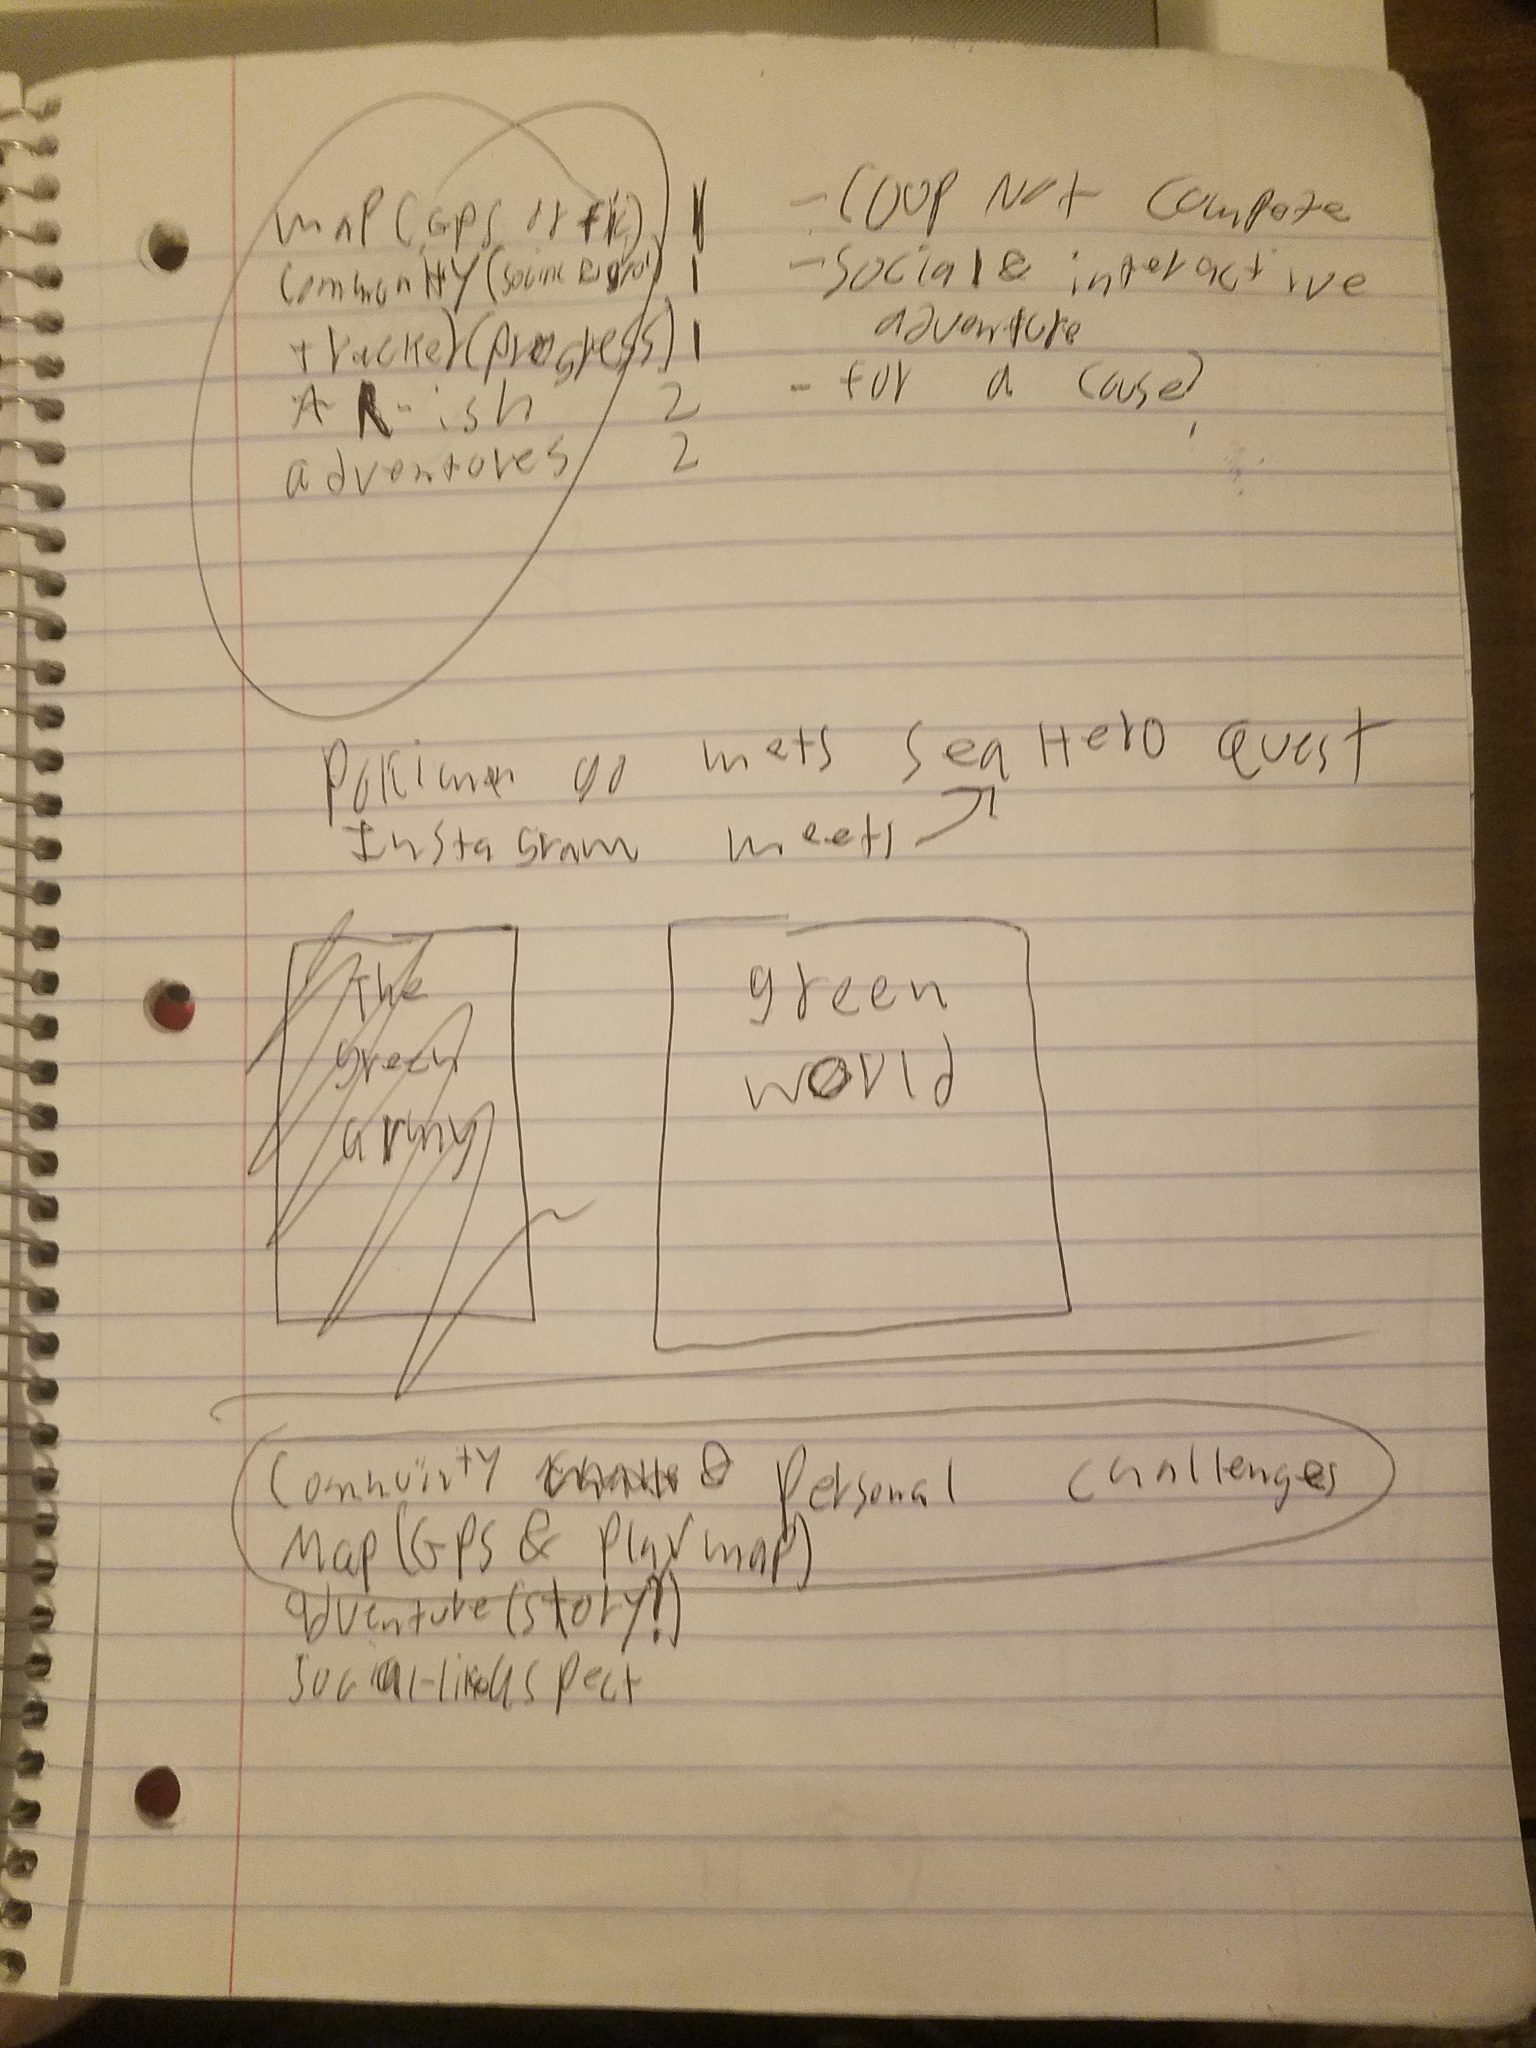 map (GPS or
community (
tracker (progress) 1
AR-ish 2
adventures 2
- COOP Not compete
- Social & interactive
adventure
- for a cause?
Pokimen go mets Sea Hero Quest
Instagram meets
the
green
army
green
world
Community & Personal challenges
Map (GPS & play map)
adventure (story?)
Social-like aspect